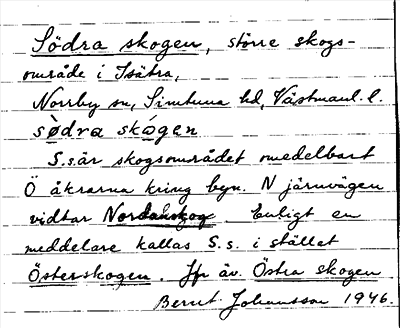 Södra skogen, större skogs-
område i Isätra,
Norrby sn, Simtuna hd, Västmanl. l.
sò̀dra skó̀gen
S.s. är skogsområdet omedelbart
Ö åkrarna kring byn. N järnvägen
vidtar Nordanskog. Enligt en
meddelare kallas S.s. i stället
Österskogen. Jfr äv. Östra skogen
Bernt Johansson 1946.